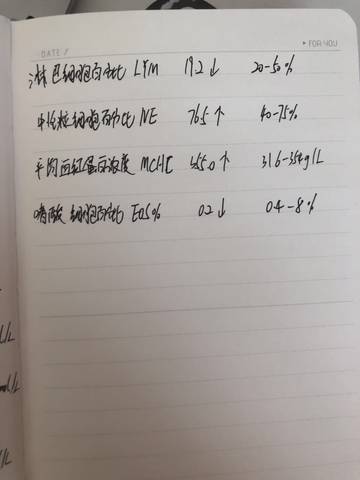 DATE /
▸ FOR YOU
淋巴细胞百分比 LYM 19.2 ↓ 20-50%
中性粒细胞百分比 NE 76.5 ↑ 40-75%
平均血红蛋白浓度 MCHC ↑ 316-354g/L
嗜酸细胞百分比 EOS% 0.2 ↓ 0.4-8%
L/L
/L
/L